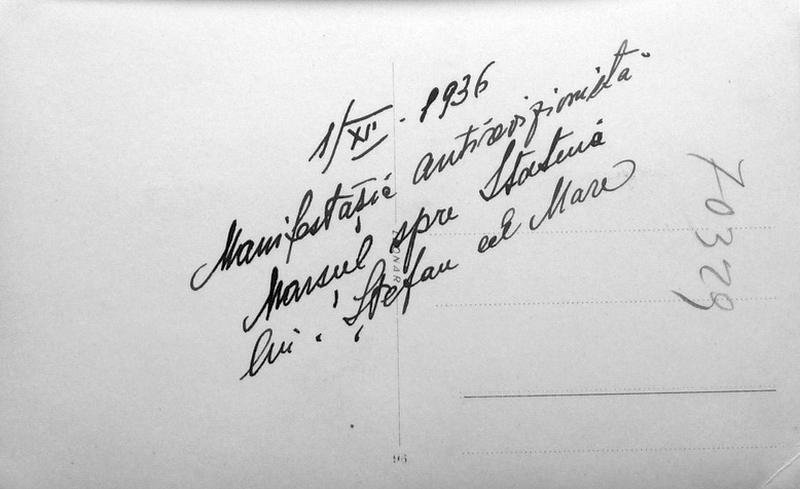 1/XII. 1936
Manifestație antirevizionistă
Marșul spre Statuia
lui Ștefan cel Mare
70329